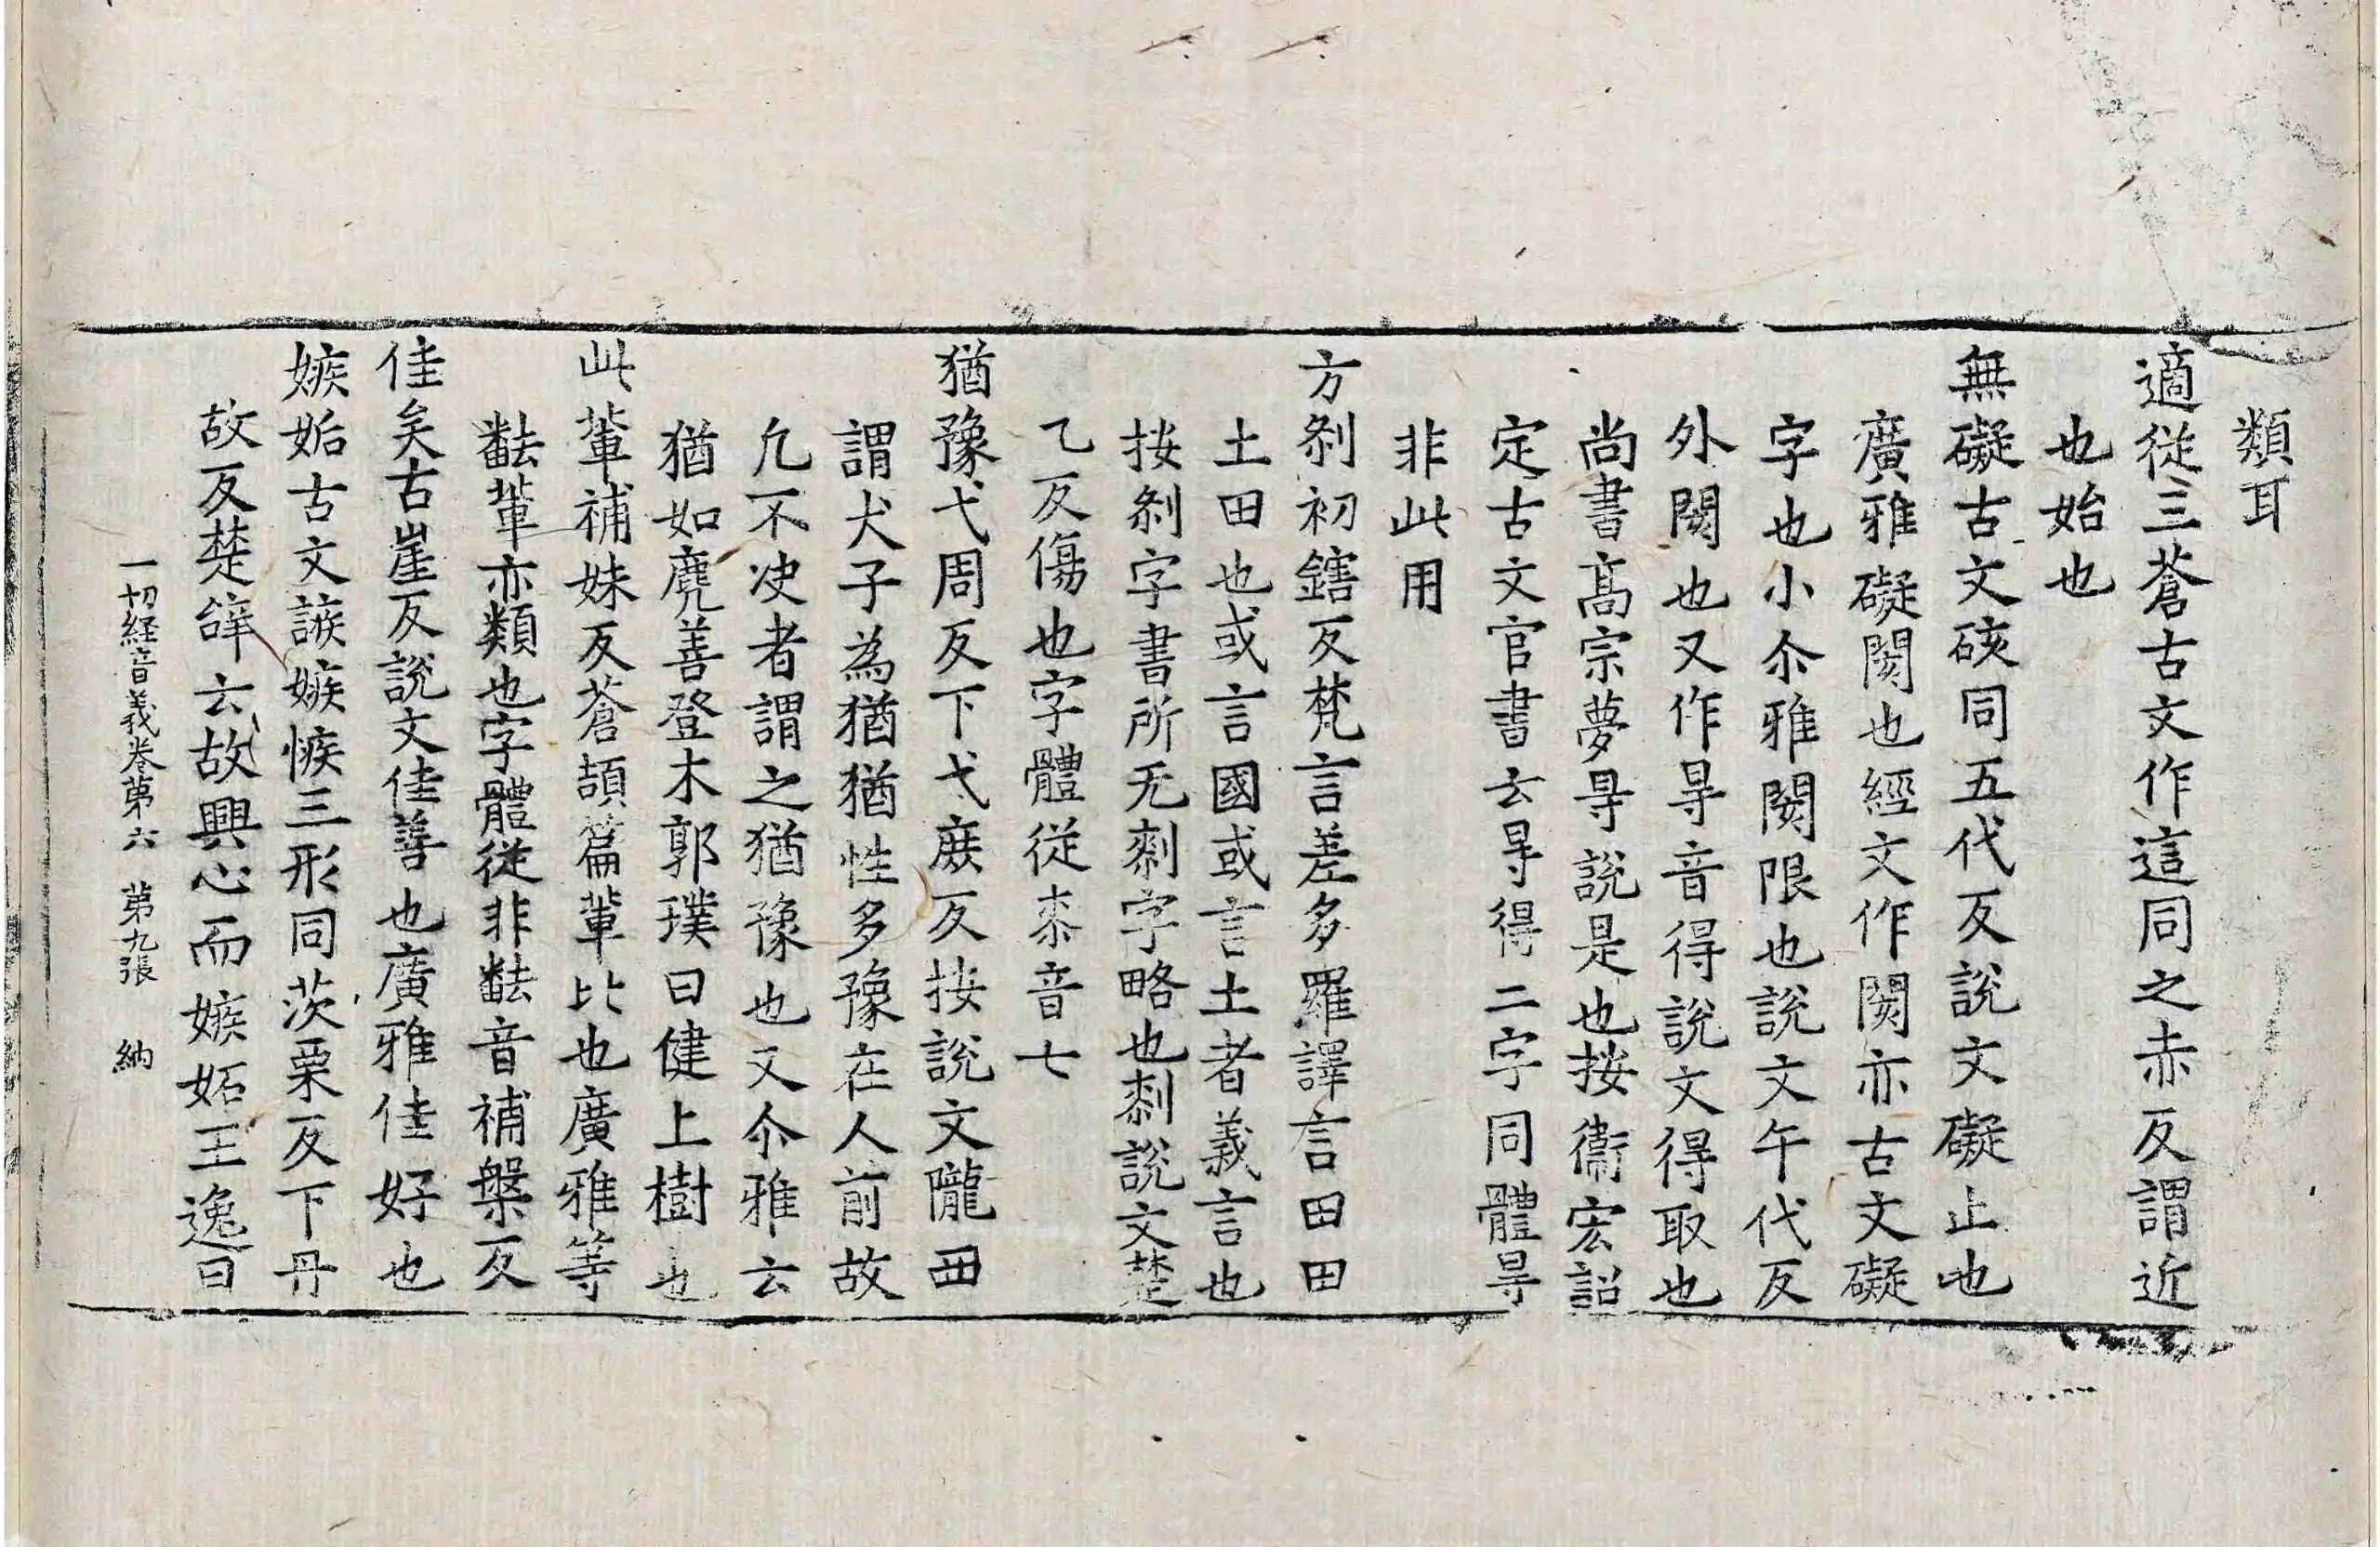 類耳
適從三蒼古文作這同之赤反謂近
也始也
無礙古文硋同五代反說文礙止也
廣雅礙閡也經文作閡亦古文礙
字也小尒雅閡限也說文午代反
外閡也又作㝵音得說文得取也
尚書髙宗夢㝵說是也按衞宏詔
定古文官書云㝵得二字同體㝵
非此用
方刹初鎋反梵言差多羅譯言田田
土田也或言國或言土者義言也
按刹字書所无剎字略也剎說文楚
乙反傷也字體從桼音七
猶豫弋周反下弋庶反按說文隴西
謂犬子為猶猶性多豫在人前故
凢不决者謂之猶豫也又尒雅云
猶如麂善登木郭璞曰健上樹也
此軰補妹反蒼頡篇軰比也廣雅等
䵛軰亦類也字體從非䵛音補槃反
佳矣古崖反說文佳善也廣雅佳好也
嫉妬古文誺嫉㑵三形同茨栗反下丹
故反楚辝云故興心而嫉妬王逸曰
一切経音義卷第六 第九張 納